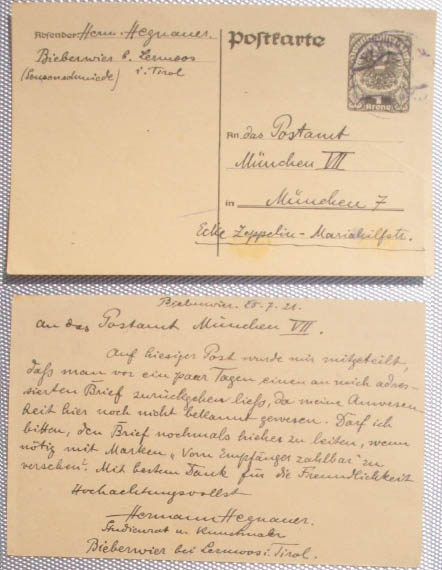 Absender: Herm. Hegnauer.
Bieberwier b. Lermoos
(Sensenschmiede) i. Tirol
Postkarte
1 Krone
An das Postamt
München VII
in München 7
Ecke Zeppelin - Mariahilfstr.
Bieberwier. 7. 21.
An das Postamt München VII.
Auf hiesiger Post wurde mir mitgeteilt,
daß man vor ein paar Tagen einen an mich adres-
sierten Brief zurückgehen ließ, da meine Anwesen-
heit hier noch nicht bekannt gewesen. Darf ich
bitten, den Brief nochmals hieher zu leiten, wenn
nötig mit Marken „Vom Empfänger zahlbar" zu
versehen. Mit bestem Dank für die Freundlichkeit
Hochachtungsvollst
Hermann Hegnauer.
Studienrat u. Kunstmaler
Bieberwier bei Lermoos i. Tirol.